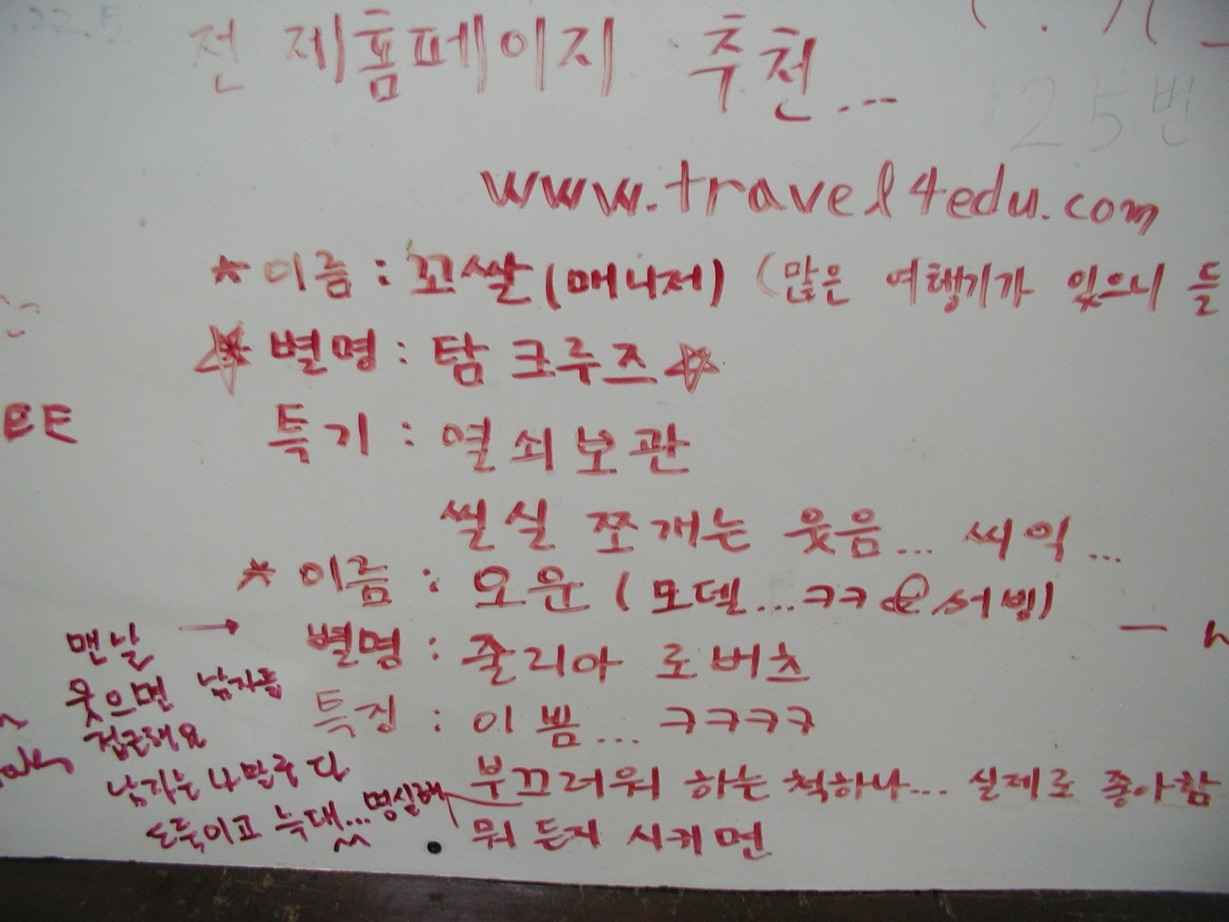 전 제홈페이지 추천...
25번
www.travel4edu.com
*이름 : 꼬쌀 (매니저) (많은 여행기가 있으니 들
별명 : 탐 크루즈
특기 : 열쇠보관
씰실 쪼개는 웃음... 씨익...
* 이름 : 오운 (모델...ㅋㅋ @서빙)
별명 : 줄리아 로버츠
특징 : 이쁨... ㅋㅋㅋㅋ
부끄러워 하는 척하나... 실제로 좋아함
뭐 든지 시키면
맨날 →
웃으면 남자들
접근해요
남자는 나말구 다
도둑이고 늑대... 명심해